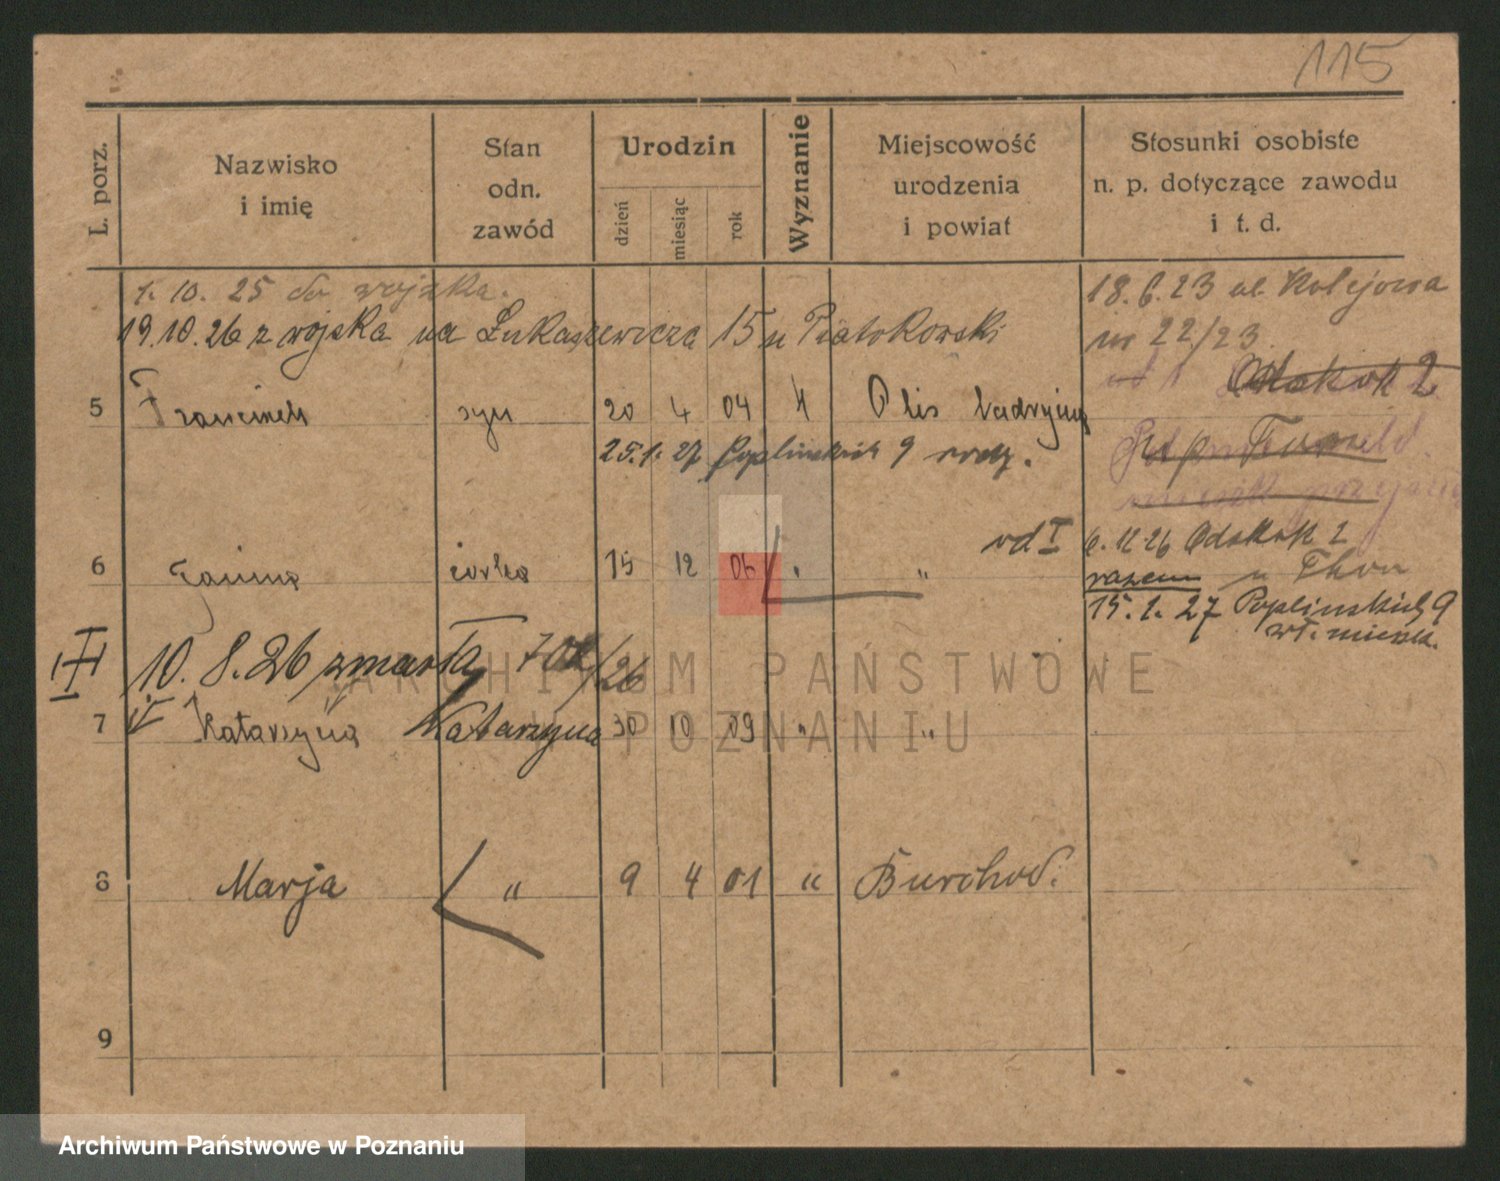 115
L. porz.
Nazwisko
i imię
Stan
odn.
zawód
Urodzin
dzień
miesiąc
rok
Wyznanie
Miejscowość
urodzenia
i powiat
Stosunki osobiste
n. p. dotyczące zawodu
i t. d.
1. 10. 25 do wojska.
19.10.26 z wojska na Łukaszewicza 15 u Piatokowski
18.6.23 ul. Kolejowa
nr 22/23
5 Franciszek syn 20 4 04 4
25.1.27 Poplinskich 9 rodz.
od I 6.12.26 Odskok 2
razem u Thon
6 Janina córka 15 12 06 " "
15.1.27 Poplinskich 9
wł. mieszk.
III 10.8.26 zmarła 702/26
7 Katarzyna Katarzyna 30 10 09 " "
8 Marja " 9 4 01 " Burchod.
9
ARCHIWUM PAŃSTWOWE
W POZNANIU
Archiwum Państwowe w Poznaniu